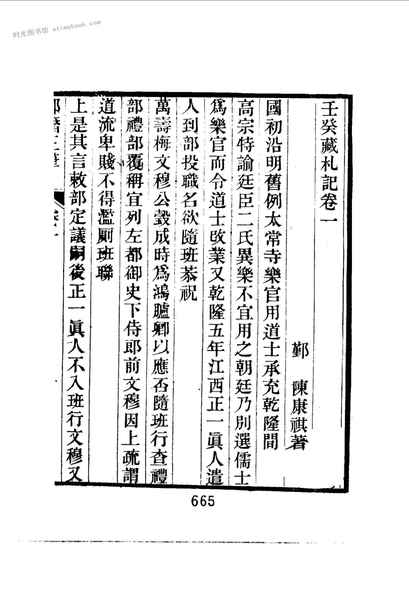 时光图书馆 etimebook.com
壬癸藏札記卷一
鄞 陳康祺著
國初沿明舊例太常寺樂官用道士承充乾隆間
高宗特諭廷臣二氏異樂不宜用之朝廷乃別選儒士
爲樂官而令道士改業又乾隆五年江西正一眞人遣
人到部投職名欲隨班恭祝
萬壽梅文穆公瑴成時爲鴻臚卿以應否隨班行查禮
部禮部覆稱宜列左都御史下侍郎前文穆因上疏謂
道流卑賤不得濫厠班聯
上是其言敕部定議嗣後正一眞人不入班行文穆又
665